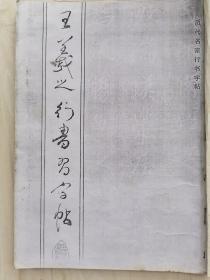 历代名家行书字帖
王羲之行書習字帖